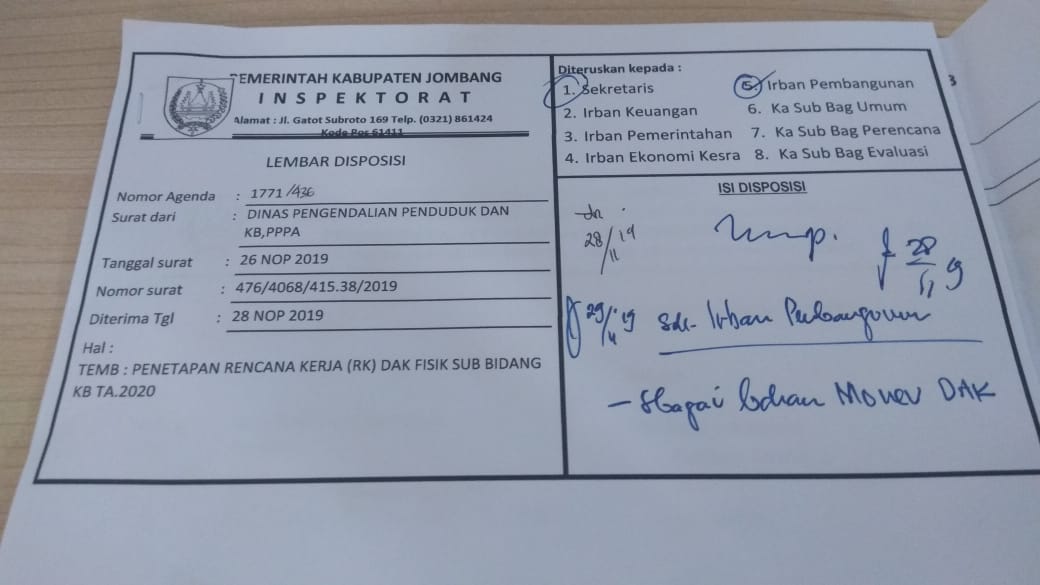 PEMERINTAH KABUPATEN JOMBANG
INSPEKTORAT
Alamat : Jl. Gatot Subroto 169 Telp. (0321) 861424
Kode Pos 61411
LEMBAR DISPOSISI
Nomor Agenda : 1771/436
Surat dari : DINAS PENGENDALIAN PENDUDUK DAN
KB,PPPA
Tanggal surat : 26 NOP 2019
Nomor surat : 476/4068/415.38/2019
Diterima Tgl : 28 NOP 2019
Hal :
TEMB : PENETAPAN RENCANA KERJA (RK) DAK FISIK SUB BIDANG
KB TA.2020
Diteruskan kepada :
1. Sekretaris
2. Irban Keuangan
3. Irban Pemerintahan
4. Irban Ekonomi Kesra
5. Irban Pembangunan
6. Ka Sub Bag Umum
7. Ka Sub Bag Perencana
8. Ka Sub Bag Evaluasi
ISI DISPOSISI
28/11 19
28/11 19
29/11 19 Sdr. Irban Pembangunan
- Sbagai bahan Monev DAK
3